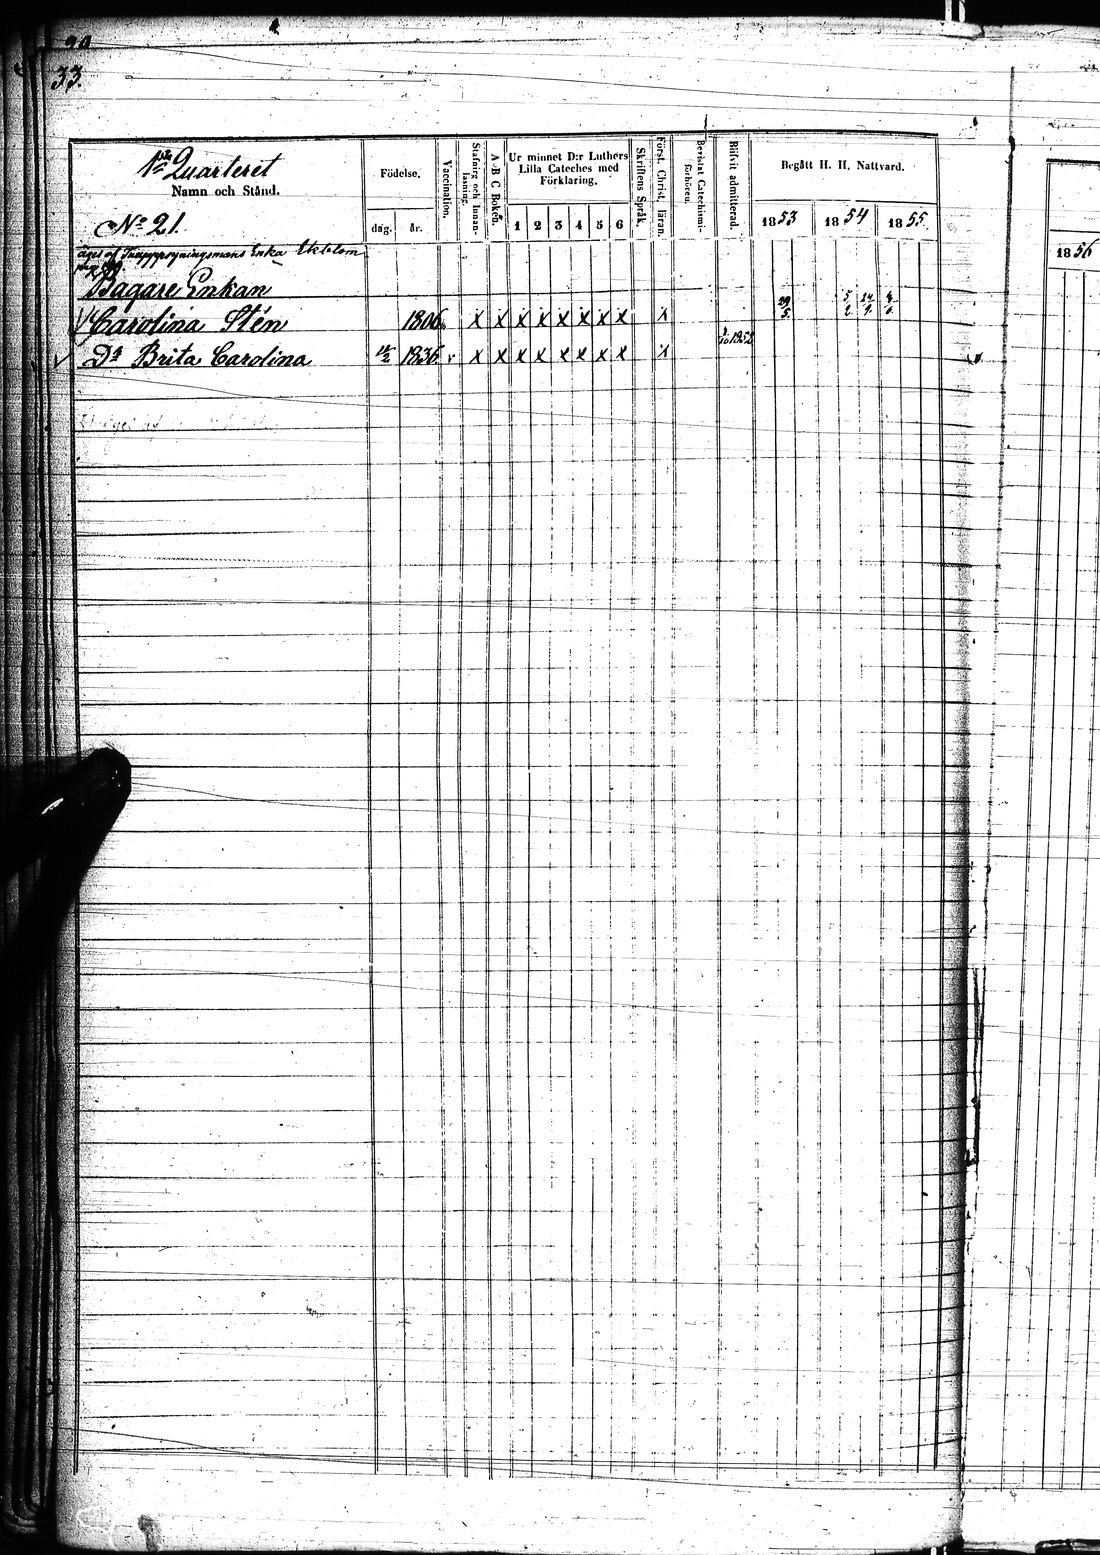 33.
1sta Quarteret
Namn och Stånd.
Födelse.
dag. år.
Vaccination.
Stafning och Innanläsning.
A B C Boken.
Ur minnet D:r Luthers
Lilla Cateches med
Förklaring.
1 2 3 4 5 6
Skriftens Språk.
Först. Christ. läran.
Bevistat Catechismiförhören.
Blifvit admitterad.
Begått H. H. Nattvard.
1853 1854 1855
1856
No 21.
äges af Enka Ekblom
Bagare Enkan
Carolina Stén 1806 x x x x x x x x x
Dr Brita Carolina 1836 v. x x x x x x x x x 1852